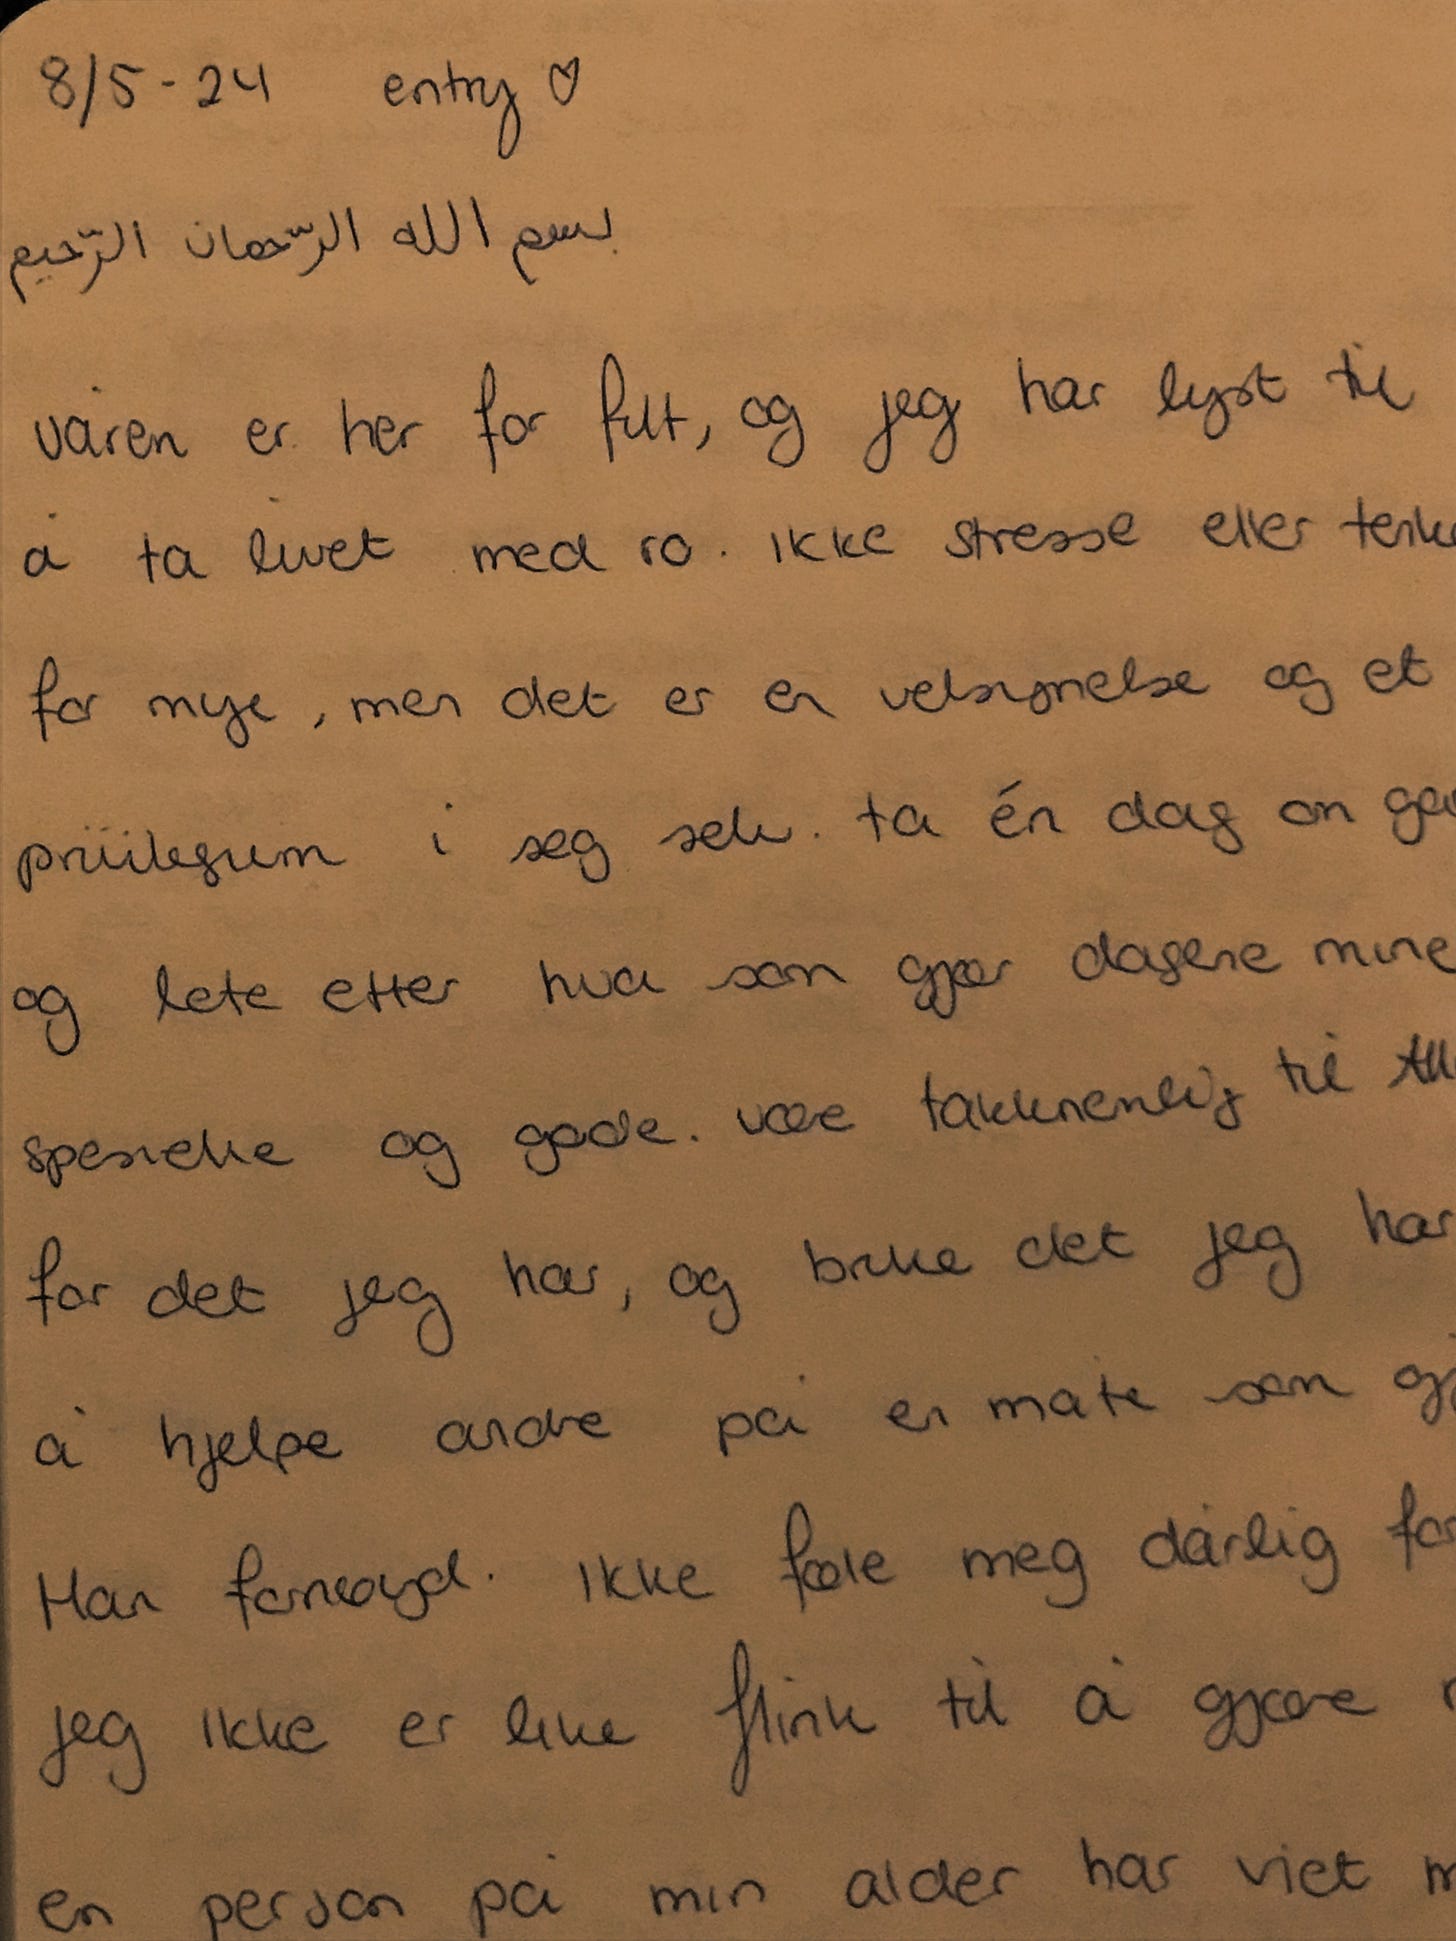 8/5-24 entry ♡
بسم الله الرّحمان الرّحيم
våren er her for fult, og jeg har lyst til
å ta livet med ro. ikke stresse eller tenke
for mye, men det er en velsignelse og et
privilegium i seg selv. ta én dag om
og lete etter hva som gjør dagene mine
spesielle og gode. være takknemlig til
for det jeg har, og bruke det jeg har
å hjelpe andre på en måte som
Han fornøyd. ikke føle meg dårlig for
jeg ikke er like flink til å gjøre
en person på min alder har viet